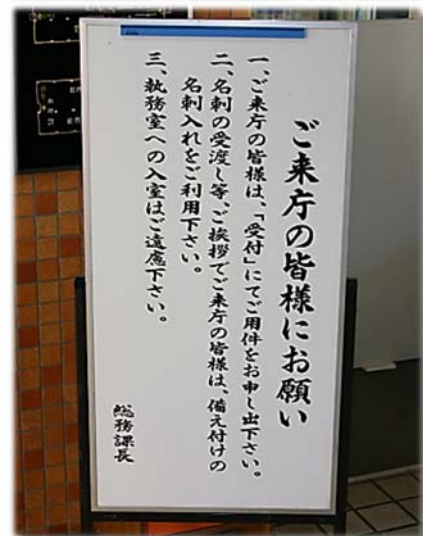 ご来庁の皆様にお願い
一、ご来庁の皆様は、「受付」にてご用件をお申し出下さい。
二、名刺の受渡し等、ご挨拶でご来庁の皆様は、備え付けの
名刺入れをご利用下さい。
三、執務室への入室はご遠慮下さい。
総務課長